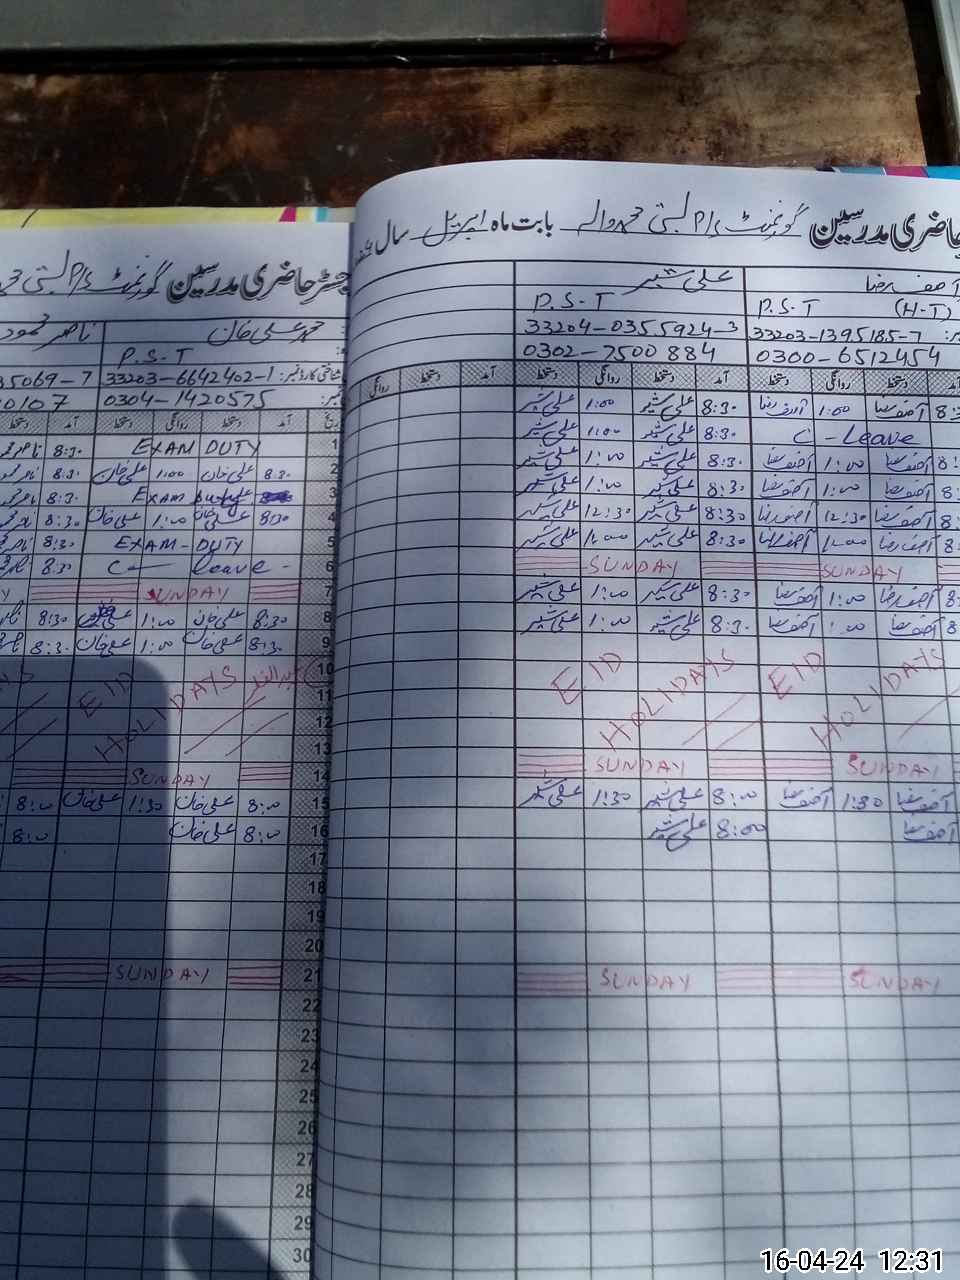 حاضری مدرسین گورنمنٹ بابت ماہ اپریل سال
آصف رضا علی شیر
(H-T) P.S.T P.S.T
33203-1395185-7 33204-0355924-3
0300-6512454 0302-7500884
آمد دستخط روانگی دستخط آمد دستخط روانگی دستخط آمد دستخط روانگی
8:3 آصف رضا 1:00 آصف رضا 8:30 علی شیر 1:00 علی شیر
C-Leave 8:30 علی شیر 1:00 علی شیر
8: آصف رضا 1:00 آصف رضا 8:30 علی شیر 1:00 علی شیر
8: آصف رضا 1:00 آصف رضا 8:30 علی شیر 1:00 علی شیر
8: آصف رضا 12:30 آصف رضا 8:30 علی شیر 12:30 علی شیر
8: آصف رضا 1:00 آصف رضا 8:30 علی شیر 1:00 علی شیر
SUNDAY SUNDAY
8: آصف رضا 1:00 آصف رضا 8:30 علی شیر 1:00 علی شیر
8 آصف رضا 1:00 آصف رضا 8:30 علی شیر 1:00 علی شیر
EID HOLIDAYS EID HOLIDAYS
SUNDAY SUNDAY
آصف رضا 1:30 آصف رضا 8:00 علی شیر 1:30 علی شیر
آصف رضا 8:00 علی شیر
SUNDAY SUNDAY
رجسٹر حاضری مدرسین گورنمنٹ
علی خان ناصر محمود
P.S.T
شناختی کارڈ نمبر: 33203-6642402-1 5069-7
0304-1420575 0107
آمد دستخط روانگی دستخط آمد
1 EXAM DUTY 8:30
2 8:30 علی خان 1:00 علی خان 8:30
3 EXAM 8:30
4 8:30 علی خان 1:00 علی خان 8:30
5 EXAM-DUTY 8:30
6 C leave - 8:30
7 SUNDAY
8 8:30 علی خان 1:00 8:30
9 8:30 علی خان 1:00 علی خان 8:30
10 عید الفطر
11 EID HOLIDAYS
12
13
14 SUNDAY
15 8:00 علی خان 1:30 علی خان 8:00
16 8:00 علی خان 8:00
17
18
19
20
21 SUNDAY
22
23
24
25
26
27
28
29
30
16-04-24 12:31